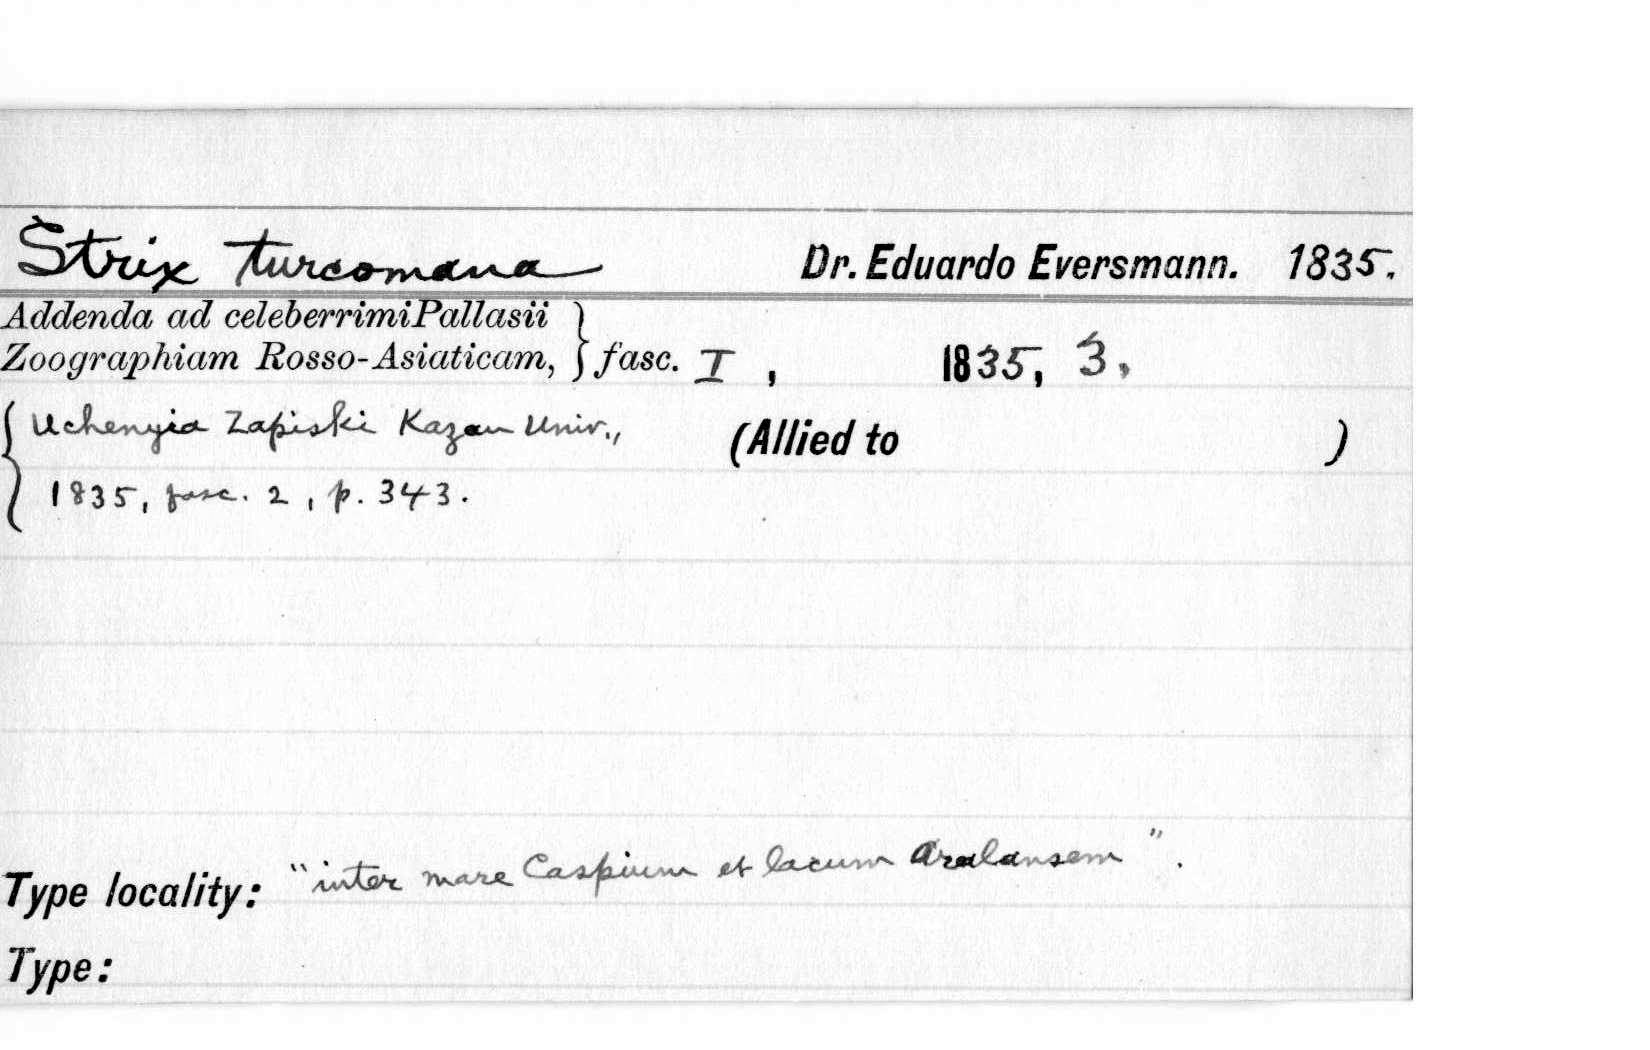 Strix turcomana Dr. Eduardo Eversmann. 1835.
Addenda ad celeberrimi Pallasii
Zoographiam Rosso-Asiaticam, } fasc. I, 1835, 3.
{ Uchenyia Zapiski Kazan Univ., (Allied to )
1835, fasc. 2, p. 343.
Type locality: "inter mare Caspium et lacum Aralensem".
Type: